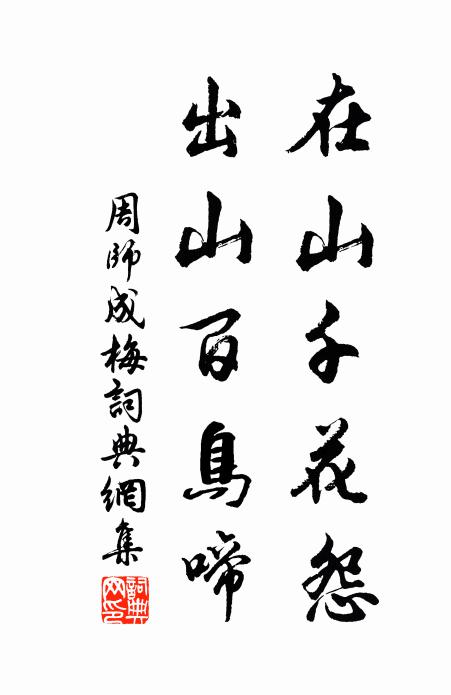 在山千花怨
出山百鳥啼
周師成梅詞典網集
詞典网印